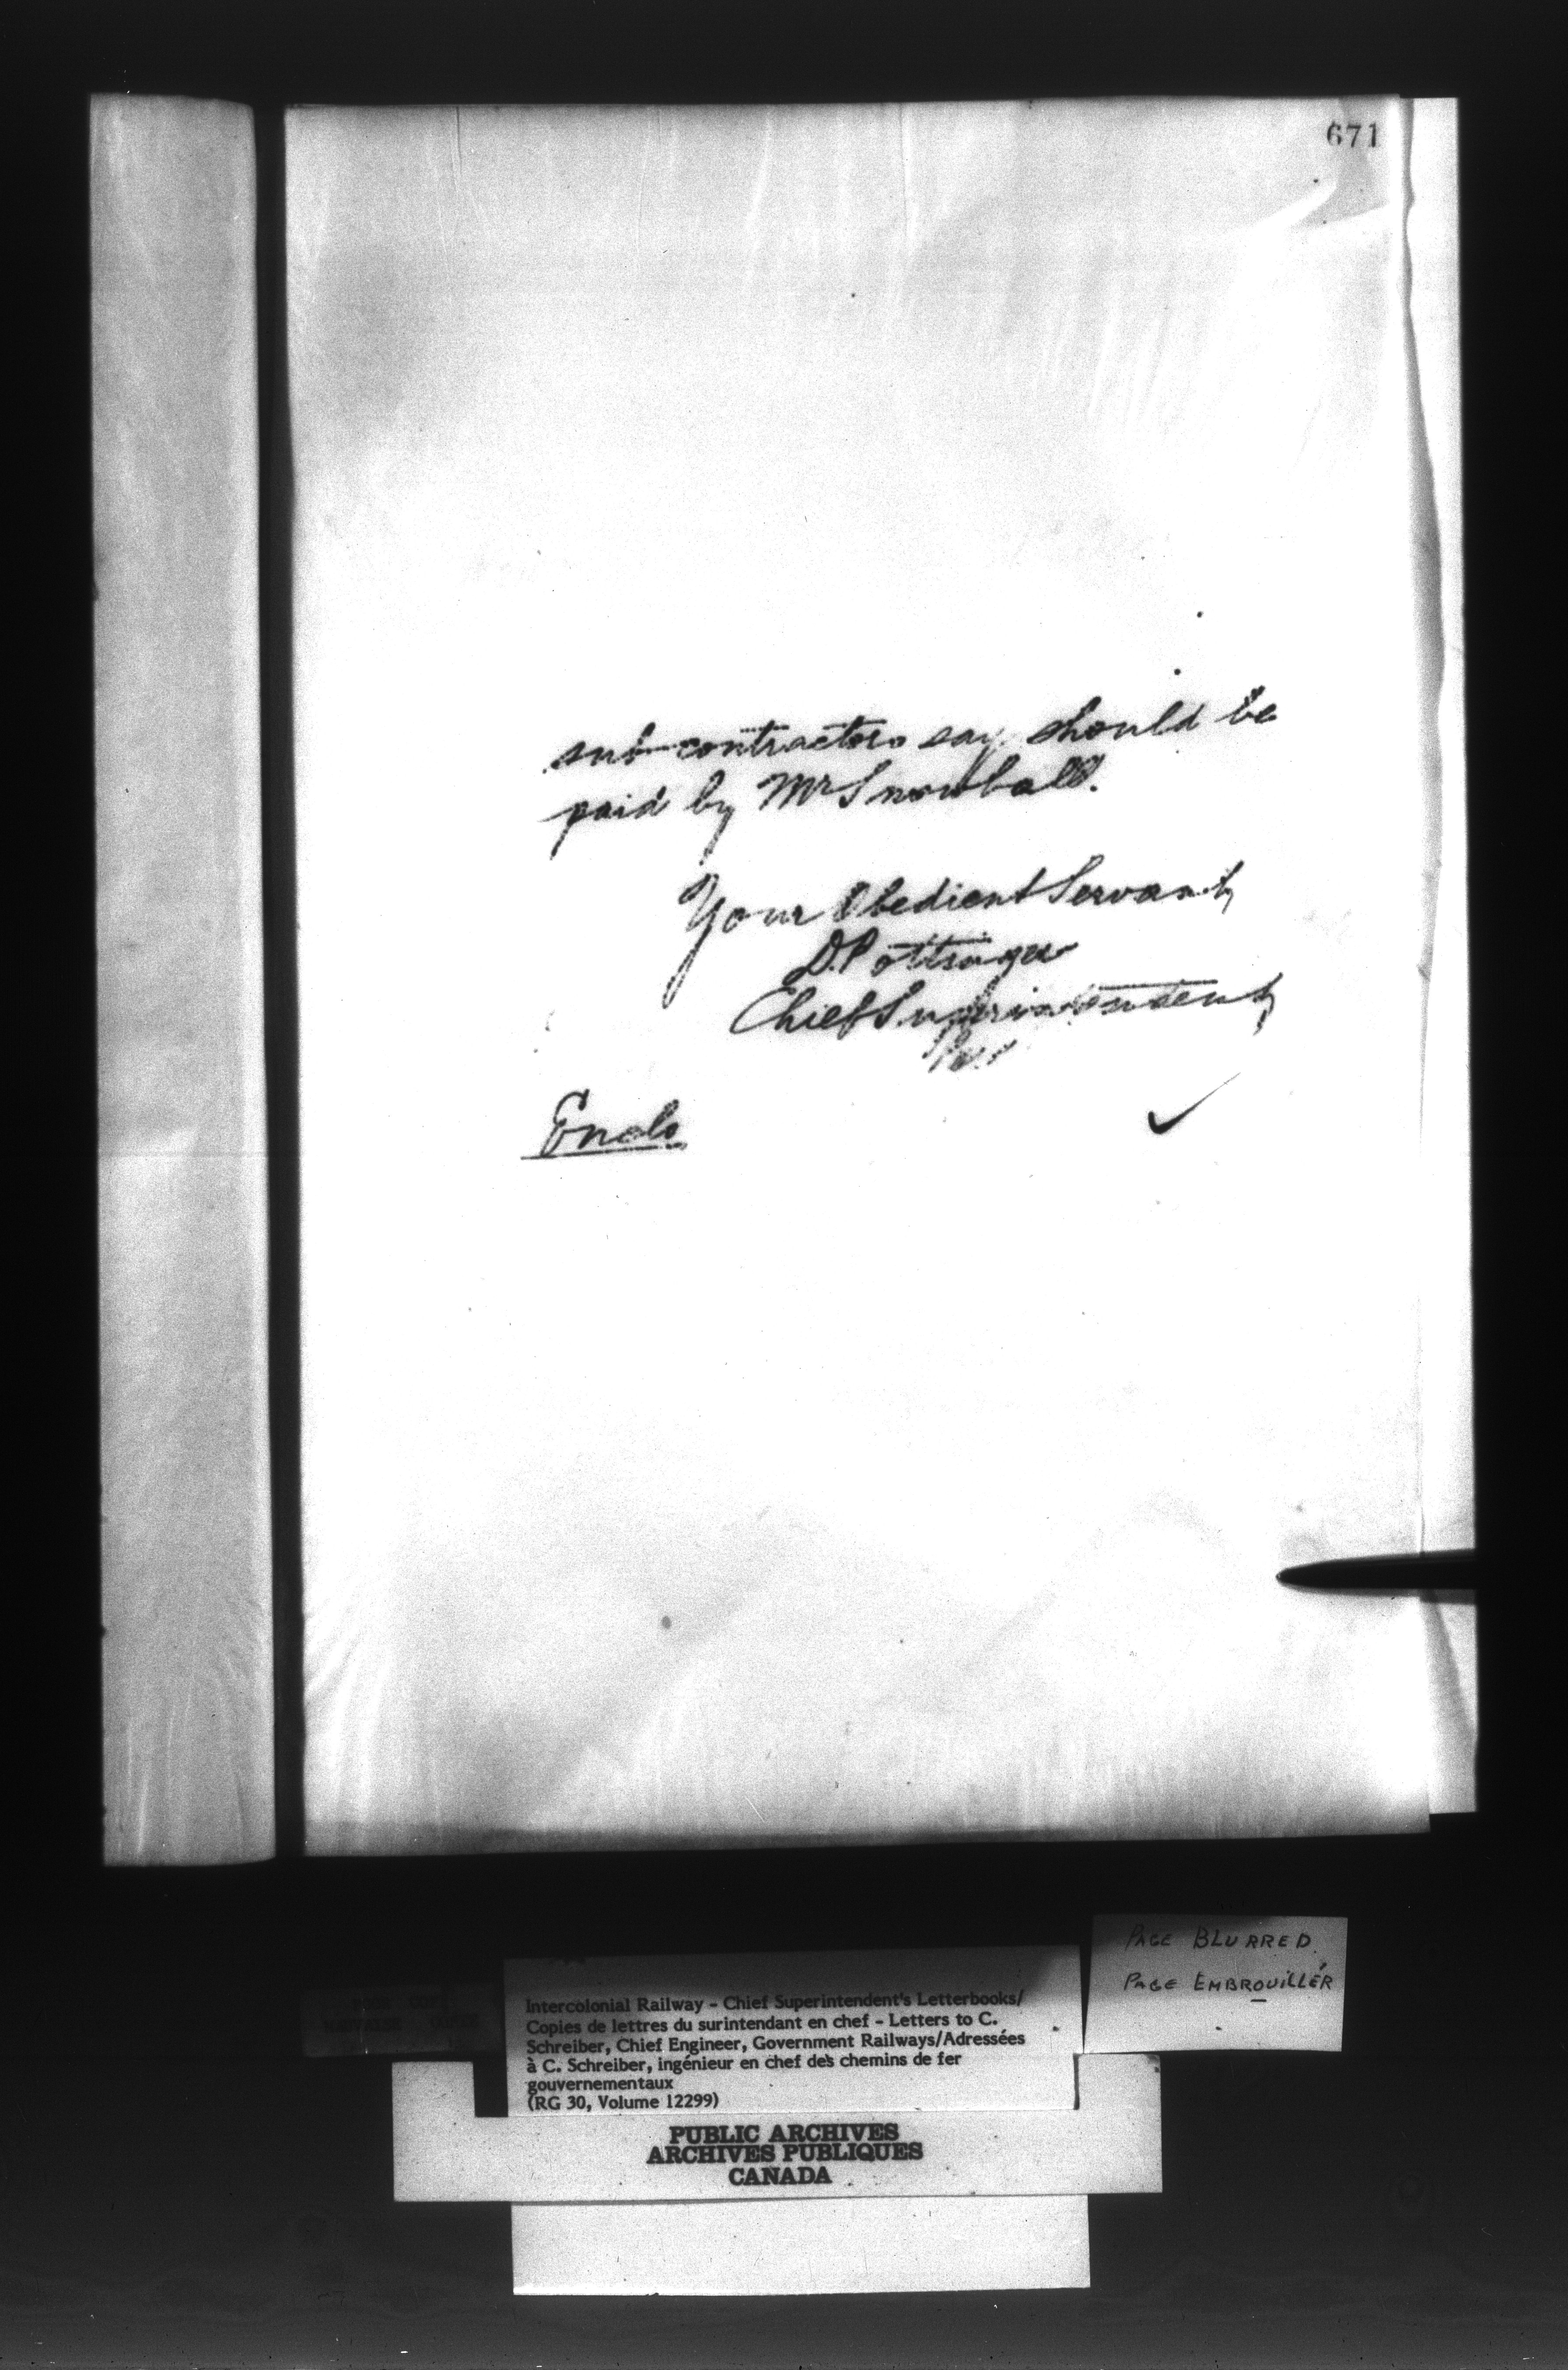 671
sub-contractors say should be
paid by Mr Snowball.
Your Obedient Servant,
D. Pottinger
Chief Superintendent,
Per
Enclo
PAGE BLURRED
PAGE EMBROUILLÉR
Intercolonial Railway - Chief Superintendent's Letterbooks/
Copies de lettres du surintendant en chef - Letters to C.
Schreiber, Chief Engineer, Government Railways/Adressées
à C. Schreiber, ingénieur en chef des chemins de fer
gouvernementaux
(RG 30, Volume 12299)
PUBLIC ARCHIVES
ARCHIVES PUBLIQUES
CANADA